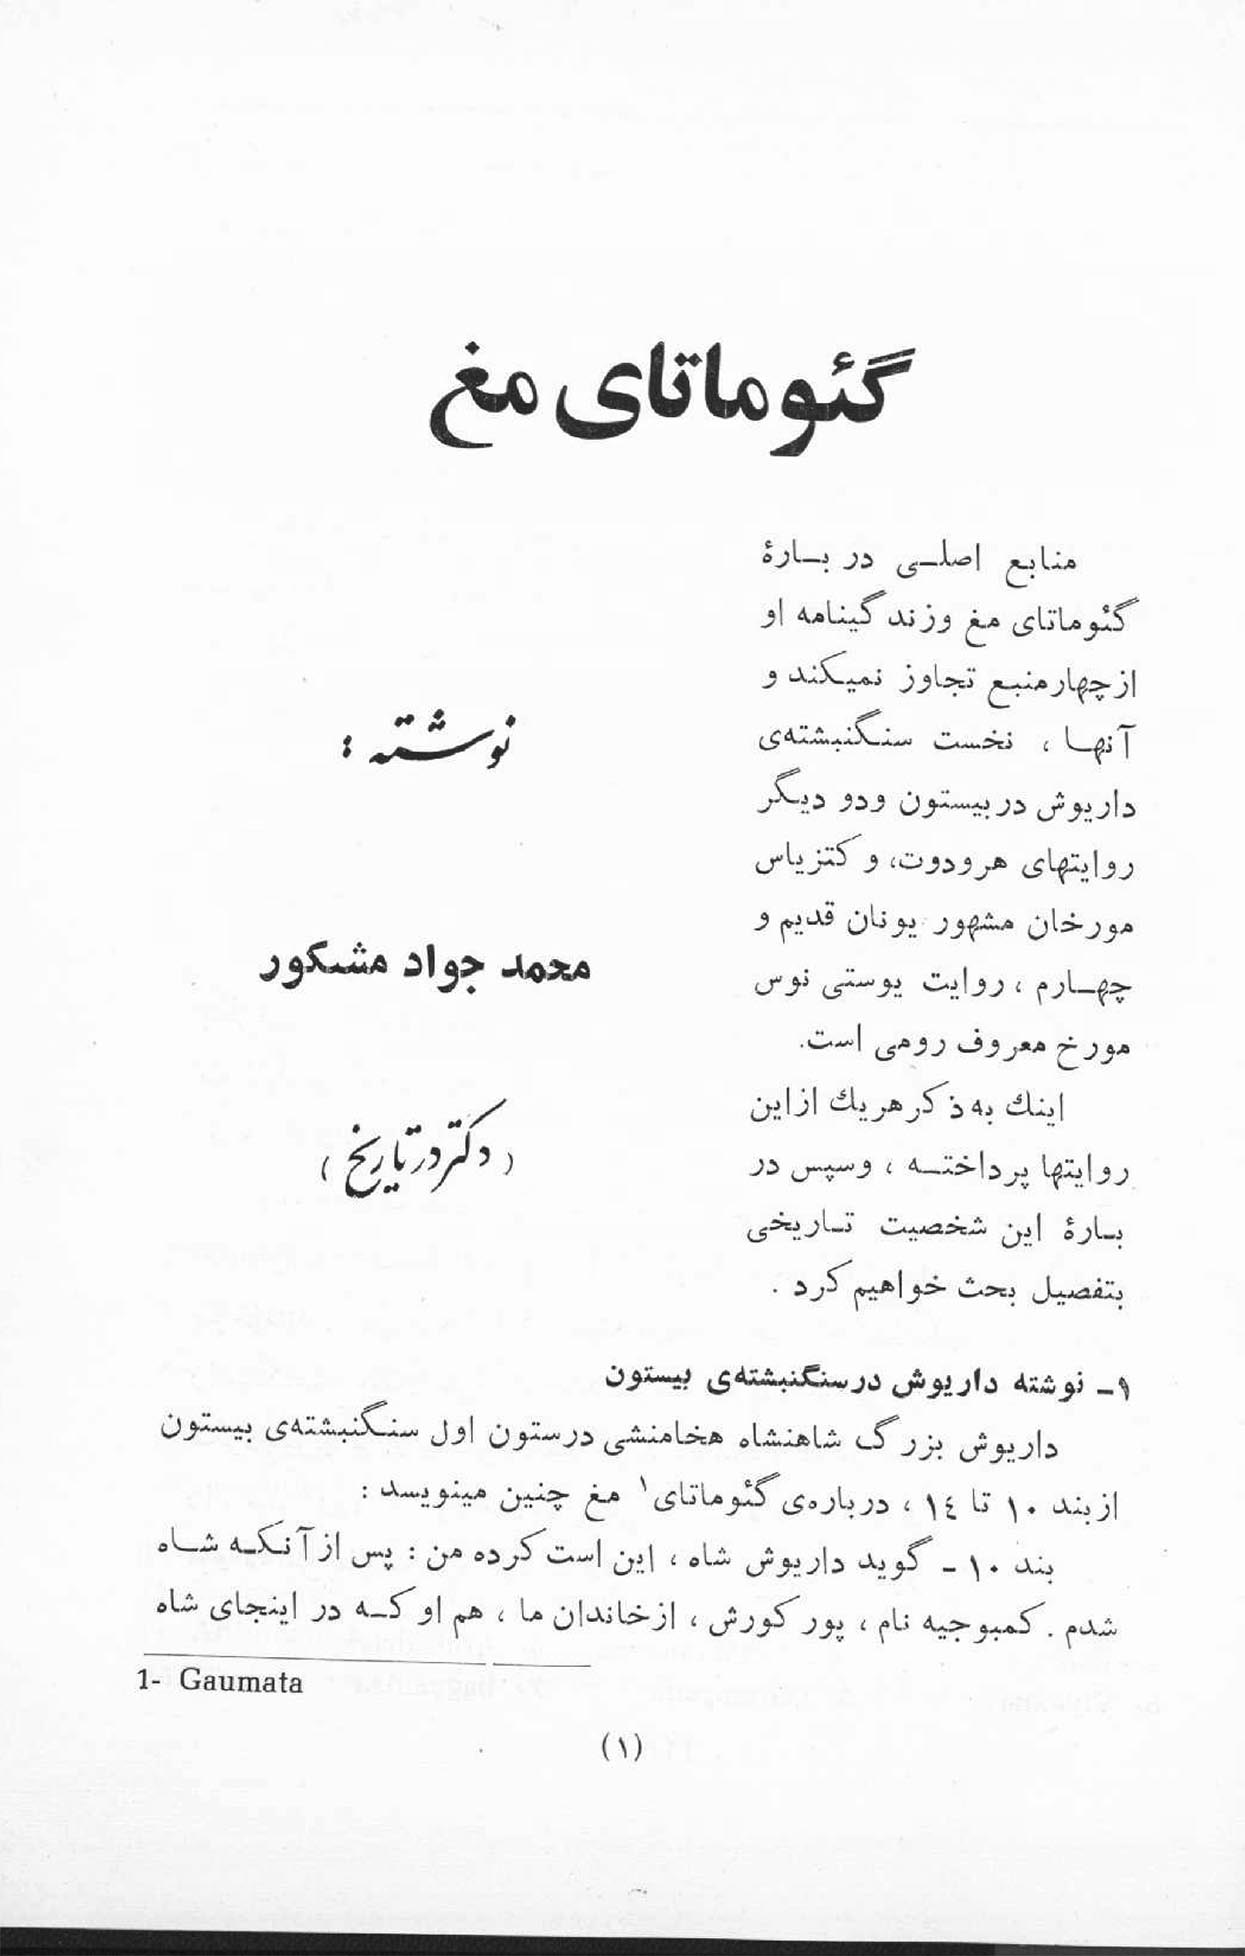 گئوماتای مغ
نوشته :
محمد جواد مشکور
( دکتر در تاریخ )
منابع اصلـی در بـارهٔ
گئوماتای مغ وزندگینامه او
ازچهارمنبع تجاوز نمیکند و
آنهـا ، نخست سنگنبشته‌ی
داریوش دربیستون ودو دیگر
روایتهای هرودوت، و کتزیاس
مورخان مشهور یونان قدیم و
چهـارم ، روایت یوستی نوس
مورخ معروف رومی است.
اینك به ذکر هریك ازاین
روایتها پرداختـه ، وسپس در
بـارهٔ این شخصیت تـاریخی
بتفصیل بحث خواهیم کرد .
۱- نوشته داریوش درسنگنبشته‌ی بیستون
داریوش بزرگ شاهنشاه هخامنشی درستون اول سنگنبشته‌ی بیستون
ازبند ۱۰ تا ۱٤ ، درباره‌ی گئوماتای۱ مغ چنین مینویسد :
بند ۱۰ - گوید داریوش شاه ، این است کرده من : پس ازآنکـه شـاه
شدم . کمبوجیه نام ، پور کورش ، ازخاندان ما ، هم او کـه در اینجای شاه
1- Gaumata
(۱)